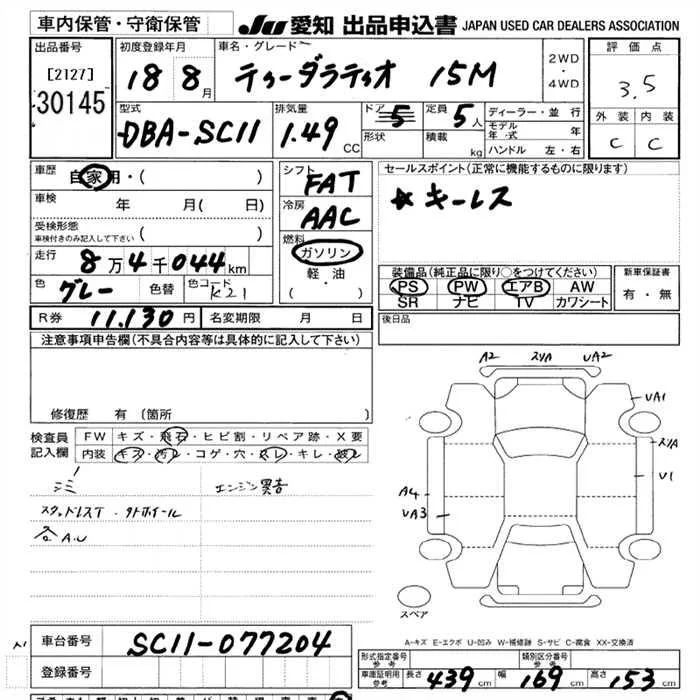 車内保管・守衛保管
JU 愛知 出品申込書 JAPAN USED CAR DEALERS ASSOCIATION
出品番号 初度登録年月 車名・グレード 評価点
[2127]
30145
18 8月 ティーダラティオ 15M 2WD・4WD 3.5
型式 排気量 ドア 定員 ディーラー・並行 外装 内装
DBA-SC11 1.49 CC 5 5人 モデル年式 年 C C
形状 積載 kg ハンドル 左・右
車歴 自家用・( ) シフト FAT セールスポイント(正常に機能するものに限ります)
車検 年 月( 日) 冷房 AAC ☆キーレス
受検形態
車検付きのみ記入して下さい ( )
燃料 ガソリン
走行 8万4千044km 軽・油
( ・ )
色 グレー 色替 色コード K21
装備品(純正品に限り○をつけてください) 新車保証書
PS PW エアB AW 有・無
SR ナビ TV カワシート
R券 11,130円 名変期限 月 日 後日品
注意事項申告欄(不具合内容等は具体的に記入して下さい)
修復歴 有(箇所 )
A2 スリA UA2
UA1
スリA
U1
A4
UA3
検査員記入欄 FW キズ・飛石・ヒビ割・リペア跡・X要
内装 キズ・汚レ・コゲ・穴・スレ・キレ・破レ
シミ エンジン異音
スタッドレスT・外ホイール
A.U
スペア
A-キズ E-エクボ U-凹み W-補修跡 S-サビ C-腐食 XX-交換済
車台番号 SC11-077204
登録番号
形式指定番号 参考 類別区分番号 参考
車庫証明用 参考 長さ 439cm 幅 169cm 高さ 153cm